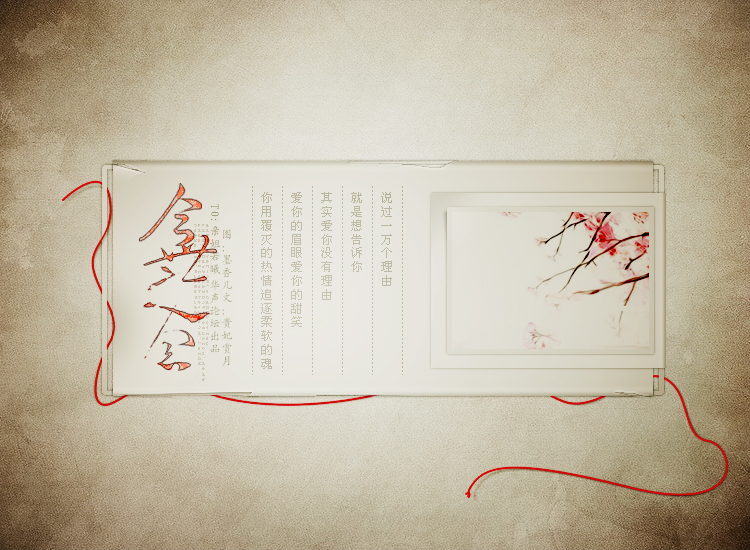 说过一万个理由
就是想告诉你
其实爱你没有理由
爱你的眉眼爱你的甜笑
你用覆灭的热情追逐柔软的魂
图 墨香儿 文 贵妃赏月
TO:亲姐若曦 华声论坛出品